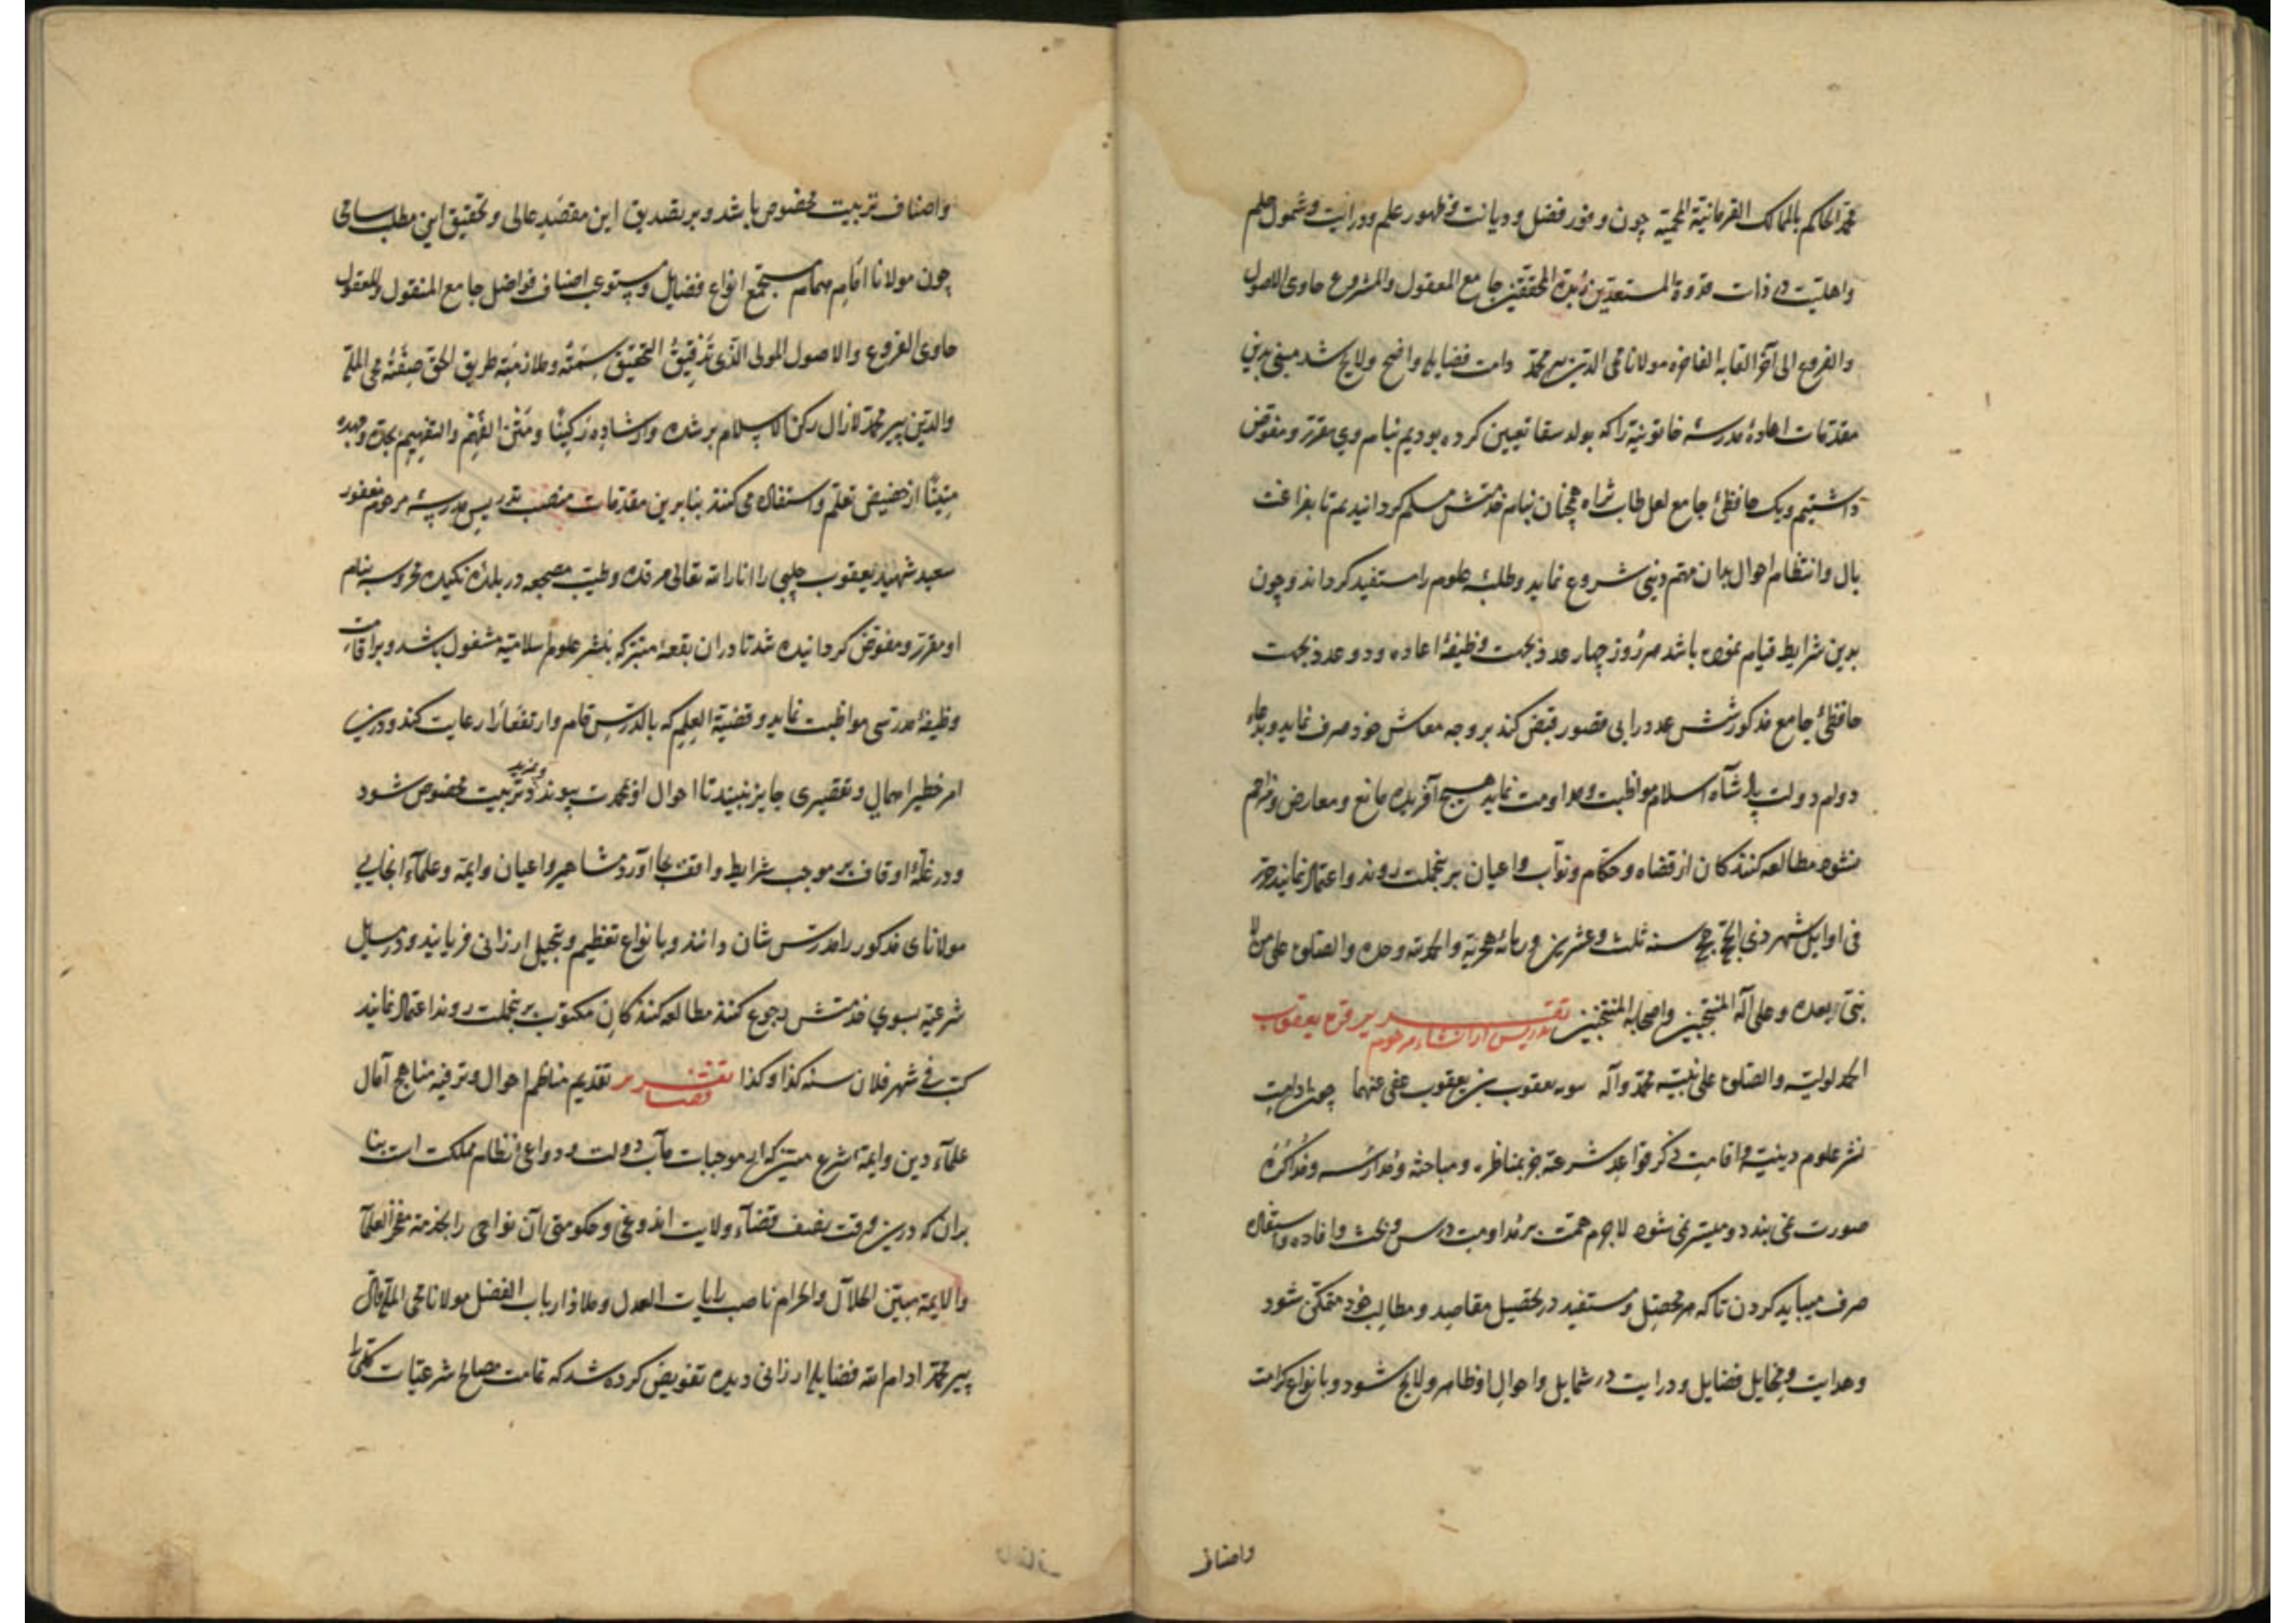 محمد الحاكم بالممالك القرمانية المحمية چون وفور فضل و ديانت و ظهور علم و درايت و شمول حلم
واهليت در ذات قدوة المستعدين زبدة المحققين جامع المعقول والمشروع حاوى الاصول
والفروع الى آخر القابه الفاخره مولانا محى الدين پير محمد دامت فضايله واضح ولايح شد مبنى برين
مقدمات اعادهٔ مدرسهٔ خاتونيه را كه بولد سقا تعيين كرده بوديم بنام وى مقرر و مفوض
داشتيم ويك حافظئ جامع لعل طاب ثراه همچنان بنام خدمتش مسلم كردانيديم تا بفراغت
بال وانتظام احوال بدان مهم دينى شروع نمايد وطلبهٔ علوم را مستفيد كرداند وچون
بدين شرايط قيام نموده باشد هر روز چهار عدد بجهت وظيفهٔ اعاده ودو عدد بجهت
حافظئ جامع مذكور شش عدد را بى قصور قبض كند بر وجه معاش خود صرف نمايد وبدعاء
دوام دولت پادشاه اسلام مواظبت ومداومت نمايد هيچ آفريده مانع ومعارض ومزاحم
نشود مطالعه كنندكان از قضاه وحكام ونواب واعيان برينجملت روند واعتماد نمايند
فى اوايل شهر ذى الحجة حجج سنه ثلث وعشرين وثمانمائه هجرية والحمد لله وحده والصلوة على من لا
نبى بعده وعلى آله المنتجبين واصحابه المنتخبين تقرير تدريس از انشاء مرحوم قره يعقوب
الحمد لوليه والصلوة على نبيه محمد وآله يعقوب بن يعقوب عفى عنهما چون
نشر علوم دينيه واقامت ذكر قواعد شرعيه جز بمناظره ومباحثه ومدارسه ومذاكره
صورت نمى بندد وميسر نمى شود لاجرم همت بر مداومت درس وبحث وافاده واستفاده
صرف ميبايد كردن تا كه هر محصل ومستفيد در تحصيل مقاصد ومطالب خود متمكن شود
وهدايت ومخايل فضايل ودرايت در شمايل واحوال او ظاهر ولايح شود وبانواع كرامت
واصناف
واصناف تربيت مخصوص باشد وبر تصديق اين مقصد عالى وتحقيق اين مطلب سامى
چون مولانا امام همام مستجمع انواع فضايل ومستوعب اصناف فواضل جامع المنقول والمعقول
حاوى الفروع والاصول المولى الذى تدقيق التحقيق سمته وملازمة طريق الحق صفته محى الملة
والدين پير محمد لازال ركن الاسلام برشده وارشاده ركينا ومتن الفهم والتفهيم بجده وجهده
متينا از حضيض تعلم واستفاده مى كنند بنابرين مقدمات منصب تدريس مدرسهٔ مرحوم مغفور
سعيد شهيد يعقوب چلبى را انار الله تعالى مرقده وطيب مضجعه در بلدهٔ نكيده محروسه بنام
او مقرر ومفوض كردانيده شد تا دران بقعهٔ متبركه بنشر علوم اسلاميه مشغول باشد وبر اقامت
وظيفهٔ مدرسى مواظبت نمايد وقضية العلم كه بالدرس قام وارتفع را رعايت كند ودرين
امر خطير اهمال وتقصيرى جايز نبيند تا احوال او بحمدت پيوندد ومزيد تربيت مخصوص شود
ودر غلهٔ اوقاف بر موجب شرايط واقف بجا آورد مشاهير واعيان وايمه وعلماء آنجايى
مولاناى مذكور را مدرس شان دانند وبانواع تعظيم وتبجيل ارزانى فرمايند ودر مسايل
شرعيه بسوى خدمتش رجوع كنند مطالعه كنندكان مكتوب برينجملت روند اعتماد نمايند
كتب فى شهر فلان سنه كذا وكذا تقرير قضا تقديم مناظم احوال وترفيه مناهج آمال
علماء دين وايمهٔ شرع مبين كه از موجبات مآب دولت ودواعى نظام مملكت است بنا
بران كه درين وقت نصف قضاء ولايت اندوغى وحكومتى آن نواحى را بخدمت مفخر العلما
والايمه مبين الحلال والحرام ناصب رايات العدل وملاذ ارباب الفضل مولانا محى الملة والدين
پير محمد ادام الله فضايله ارزانى ديده تفويض كرده شد كه تمامت مصالح شرعيات كلى را